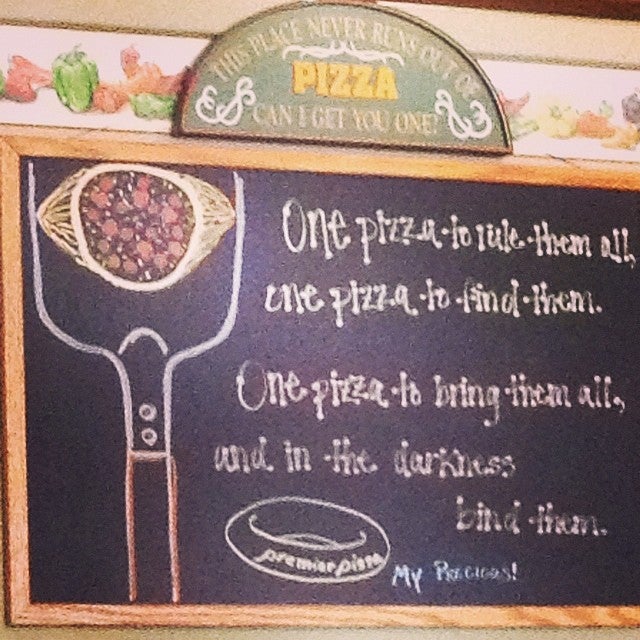 THIS PLACE NEVER RUNS OUT OF
PIZZA
CAN I GET YOU ONE?
One pizza to rule them all,
one pizza to find them.
One pizza to bring them all,
and in the darkness
bind them.
premier pizza
My Precious!